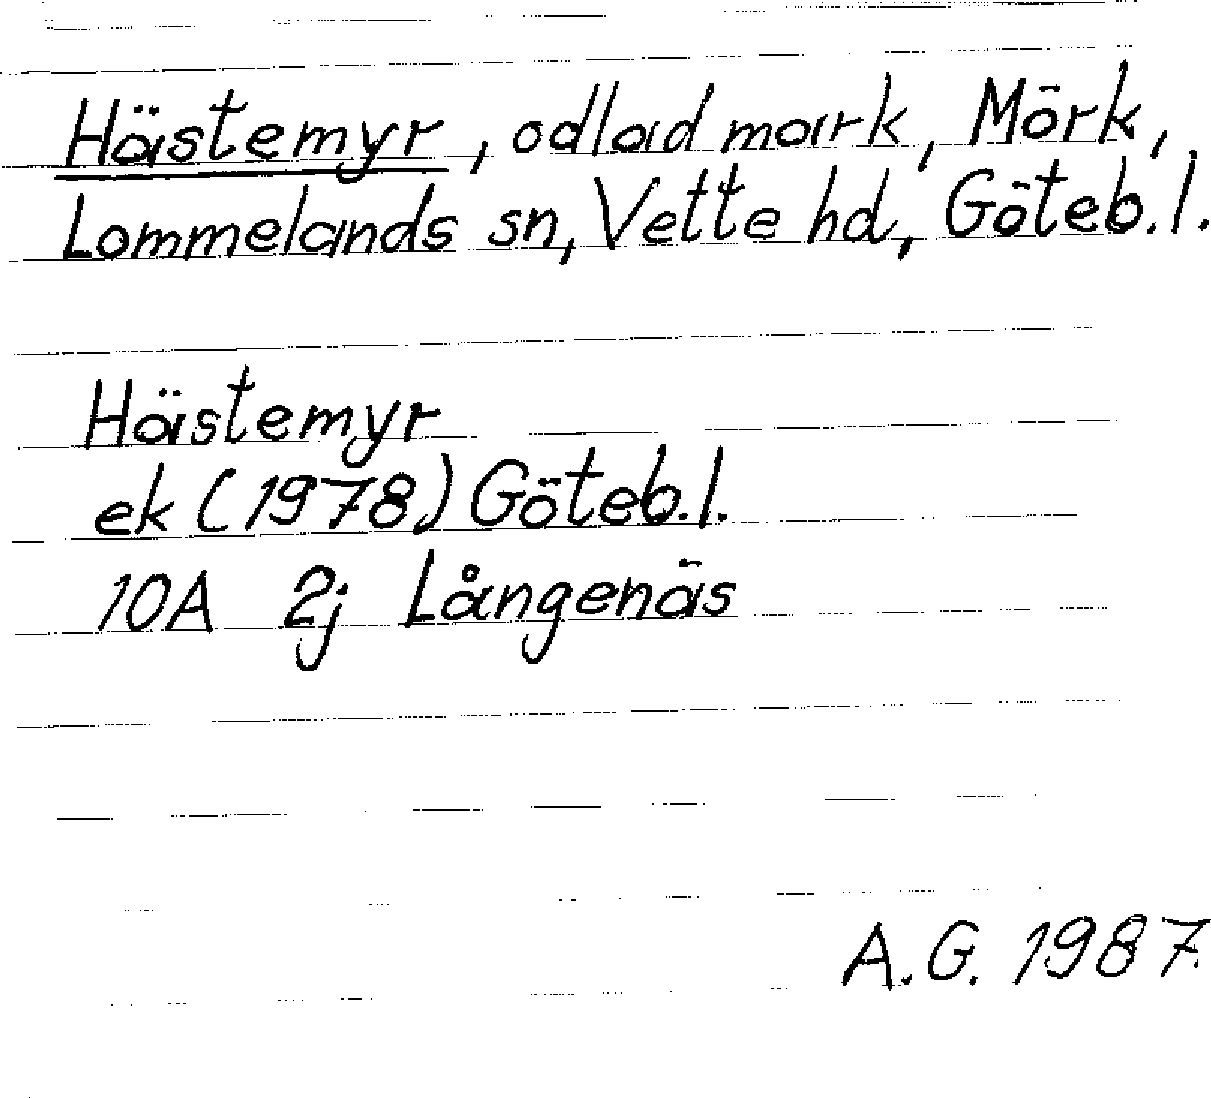 Hästemyr, odlad mark, Mörk,
Lommelands sn, Vette hd, Göteb.l.
Hästemyr
ek (1978) Göteb.l.
10A 2j Långenäs
A.G. 1987.